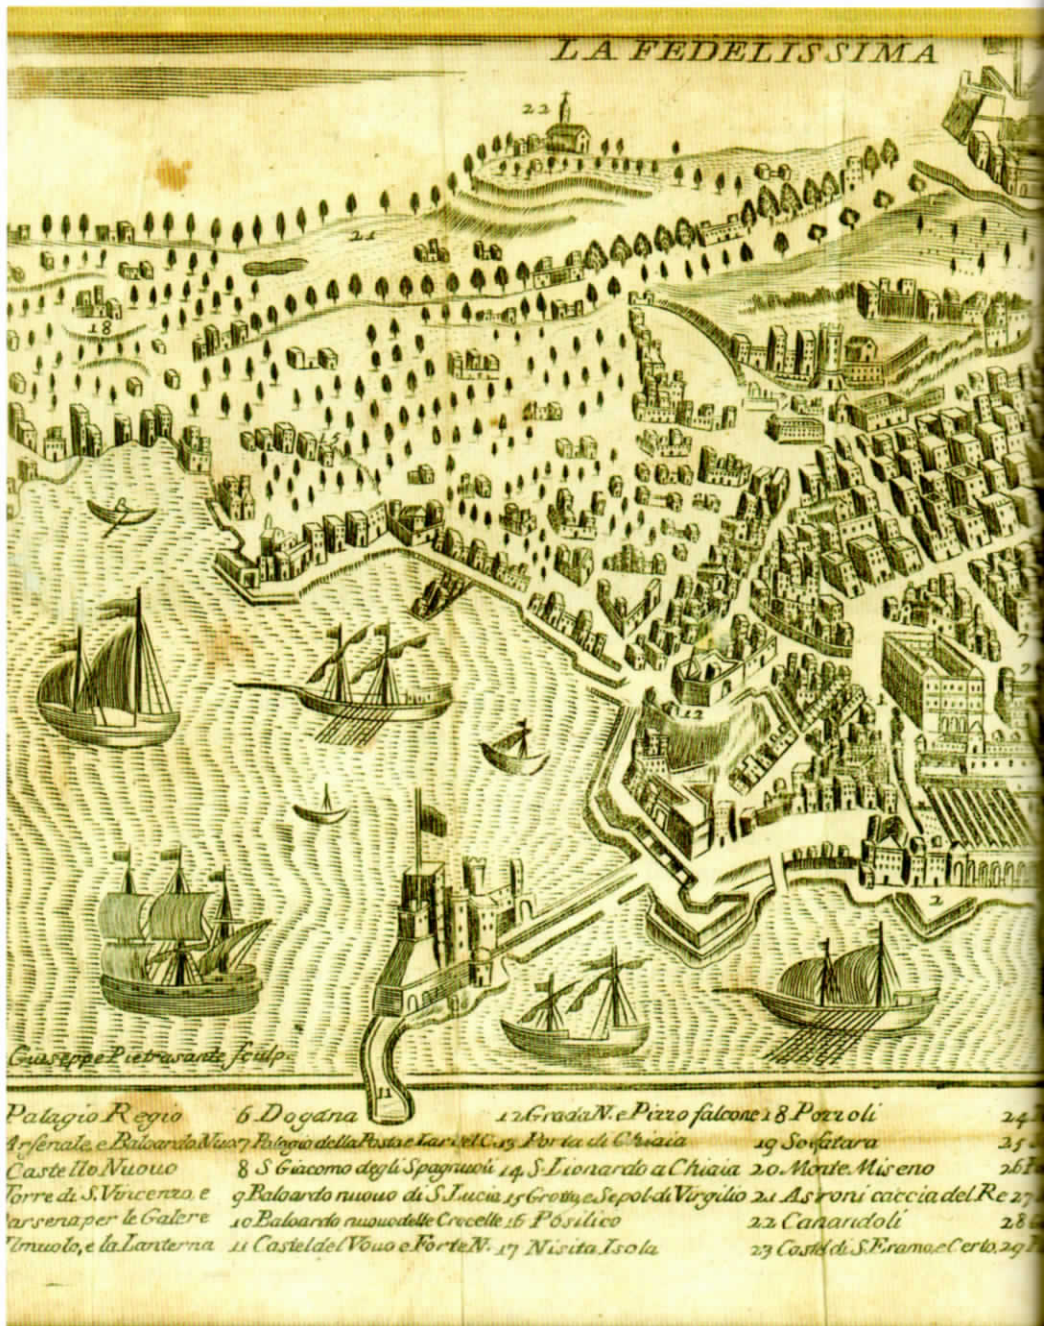 LA FEDELISSIMA
22
21
18
12
1
7
2
Giuseppe Pietrasante sculp.
11
Palagio Regio
Arsenale, e Baloardo Nuo
Castello Nuouo
Torre di S. Vincenzo, e
Darsena per le Galere
Il muolo, e la Lanterna
6 Dogana
7 Palagio della Posta e
8 S Giacomo degli Spagnuoli
9 Baloardo nuouo di S. Lucia
10 Baloardo nuouo delle Crocelle
11 Castel del Vouo e Forte N.
12 Grada N. e Pizzo falcone
13 Porta di Chiaia
14 S. Lionardo a Chiaia
15 Grotta, e Sepol. di Virgilio
16 Posilico
17 Nisita Isola
18 Pozzoli
19 Solfatara
20 Monte Miseno
21 Astroni caccia del Re
22 Camandoli
23 Castel di S. Eramo, e Certo.
24
25
26
27
28
29